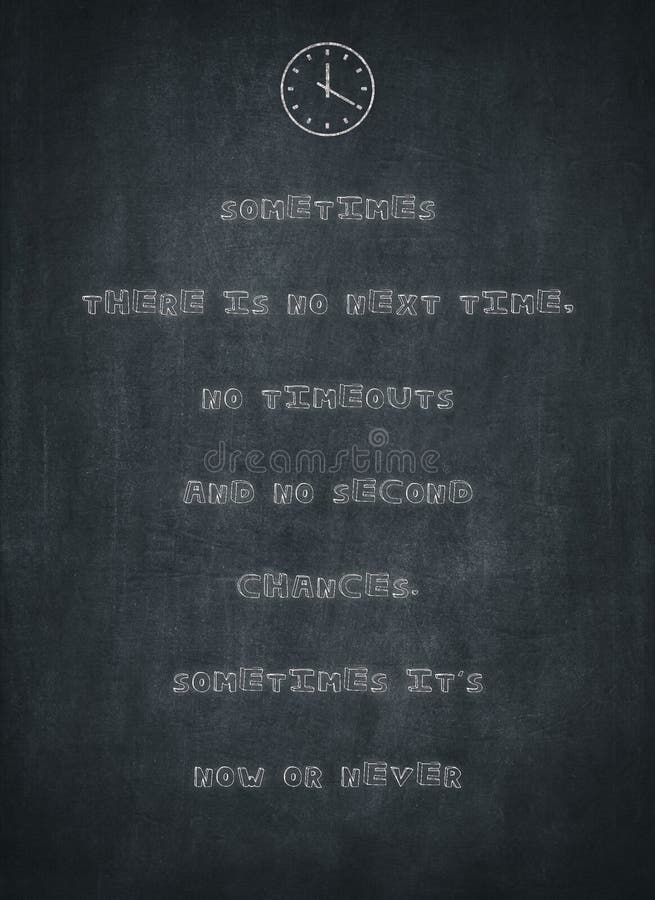 SOMETIMES
THERE IS NO NEXT TIME,
NO TIMEOUTS
dreamstime.
AND NO SECOND
CHANCES.
SOMETIMES IT'S
NOW OR NEVER